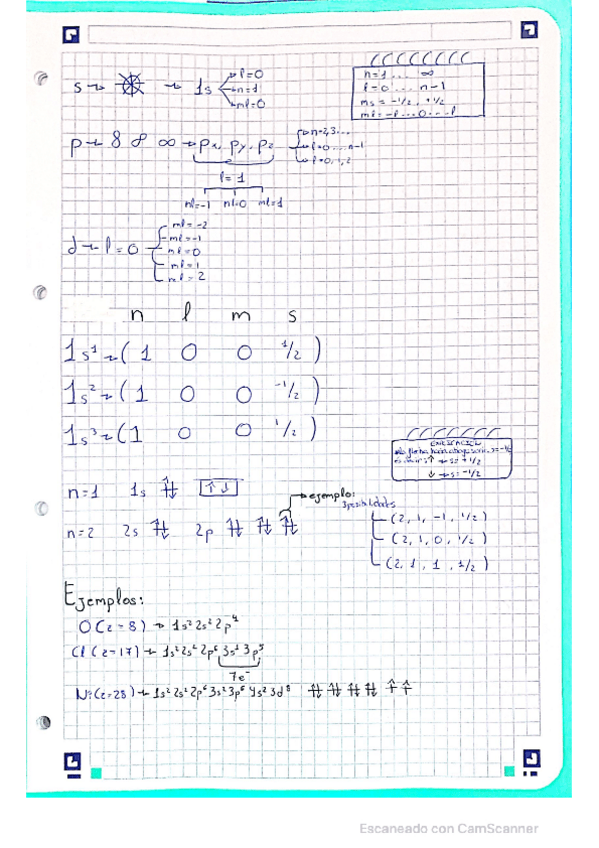 s → 1s l=0
n=1
ml=0
n=1 ... ∞
l=0 ... n-1
ms = -1/2, +1/2
ml = -l ... 0 ... l
p → 8 8 ∞ → px, py, pz
n=2,3...
l=0 ... n-1
l=0,1,2
l=1
ml=-1 ml=0 ml=1
d → l=0
ml=-2
ml=-1
ml=0
ml=1
ml=2
n l m s
1s¹ → ( 1 0 0 1/2 )
1s² → ( 1 0 0 -1/2 )
1s³ → ( 1 0 0 1/2 )
s=-1/2
↑ → s=+1/2
↓ → s=-1/2
n=1 1s ↑↓ ↑↓
n=2 2s ↑↓ 2p ↑↓ ↑↓ ↑↓ → ejemplo:
3 posibilidades
(2, 1, -1, 1/2)
(2, 1, 0, 1/2)
(2, 1, 1, 1/2)
Ejemplos:
O (z=8) → 1s² 2s² 2p⁴
Cl (z=17) → 1s² 2s² 2p⁶ 3s² 3p⁵
7e⁻
Ni (z=28) → 1s² 2s² 2p⁶ 3s² 3p⁶ 4s² 3d⁸ ↑↓ ↑↓ ↑↓ ↑↓ ↑ ↑
Escaneado con CamScanner